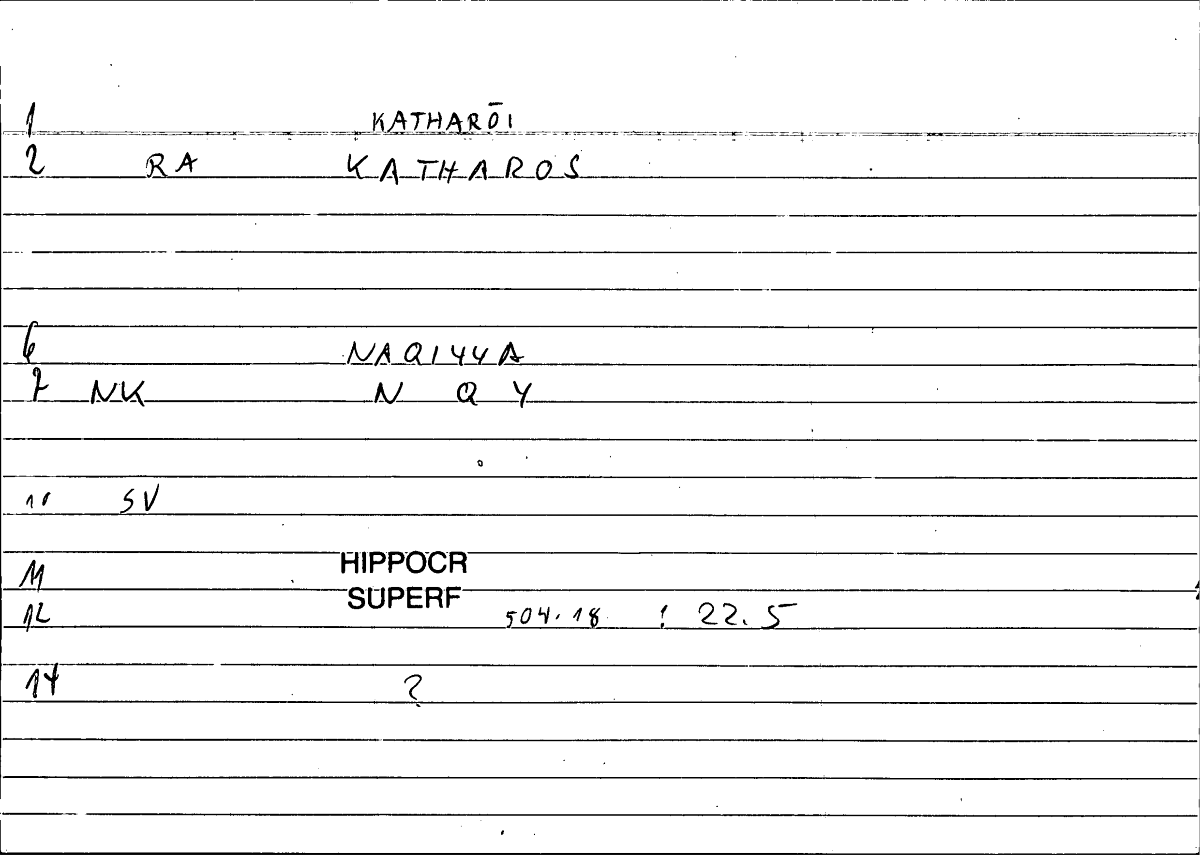 1 KATHARŌI
2 RA KATHAROS
6 NAQIYYA
7 NK N Q Y
10 SV
11 HIPPOCR
SUPERF
12 504.18 : 22.5
14 ?